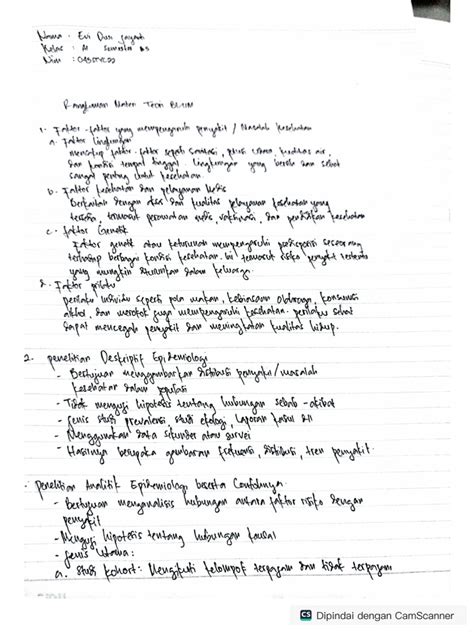 Nama : Evi Dwi
Kelas : A1 Semester
Nim :
Rangkuman Materi Teori BLUM
1. Faktor-faktor yang mempengaruhi penyakit / Masalah kesehatan
a. Faktor lingkungan
mencakup faktor-faktor seperti sanitasi, polusi udara, kualitas air,
dan kondisi tempat tinggal. Lingkungan yang bersih dan sehat
sangat penting untuk kesehatan
b. Faktor kesehatan dan pelayanan Medis
berkaitan dengan akses dan kualitas pelayanan kesehatan yang
tersedia, termasuk perawatan medis, vaksinasi, dan pendidikan kesehatan
c. faktor Genetik
Faktor genetik atau keturunan mempengaruhi predisposisi seseorang
terhadap berbagai kondisi kesehatan. ini termasuk risiko penyakit tertentu
yang mungkin diturunkan dalam keluarga.
d. Faktor prilaku
perilaku individu seperti pola makan, kebiasaan olahraga, konsumsi
alkohol, dan merokok juga mempengaruhi kesehatan. perilaku sehat
dapat mencegah penyakit dan meningkatkan kualitas hidup.
2. penelitian Deskriptif Epidemiologi
- Bertujuan menggambarkan distribusi penyakit/masalah
kesehatan dalam populasi
- Tidak menguji hipotesis tentang hubungan sebab-akibat
- Jenis studi prevalensi, studi ekologi, laporan kasus dll
- Menggunakan data sekunder atau survei
- Hasilnya berupa gambaran frekuensi, distribusi, tren penyakit.
- Penelitian Analitik Epidemiologi beserta Contohnya.
- Bertujuan menganalisis hubungan antara faktor risiko dengan
penyakit
- Menguji hipotesis tentang hubungan kausal
- Jenis Utama:
a. Studi kohort: Mengikuti kelompok terpajan dan tidak terpajan
CS Dipindai dengan CamScanner